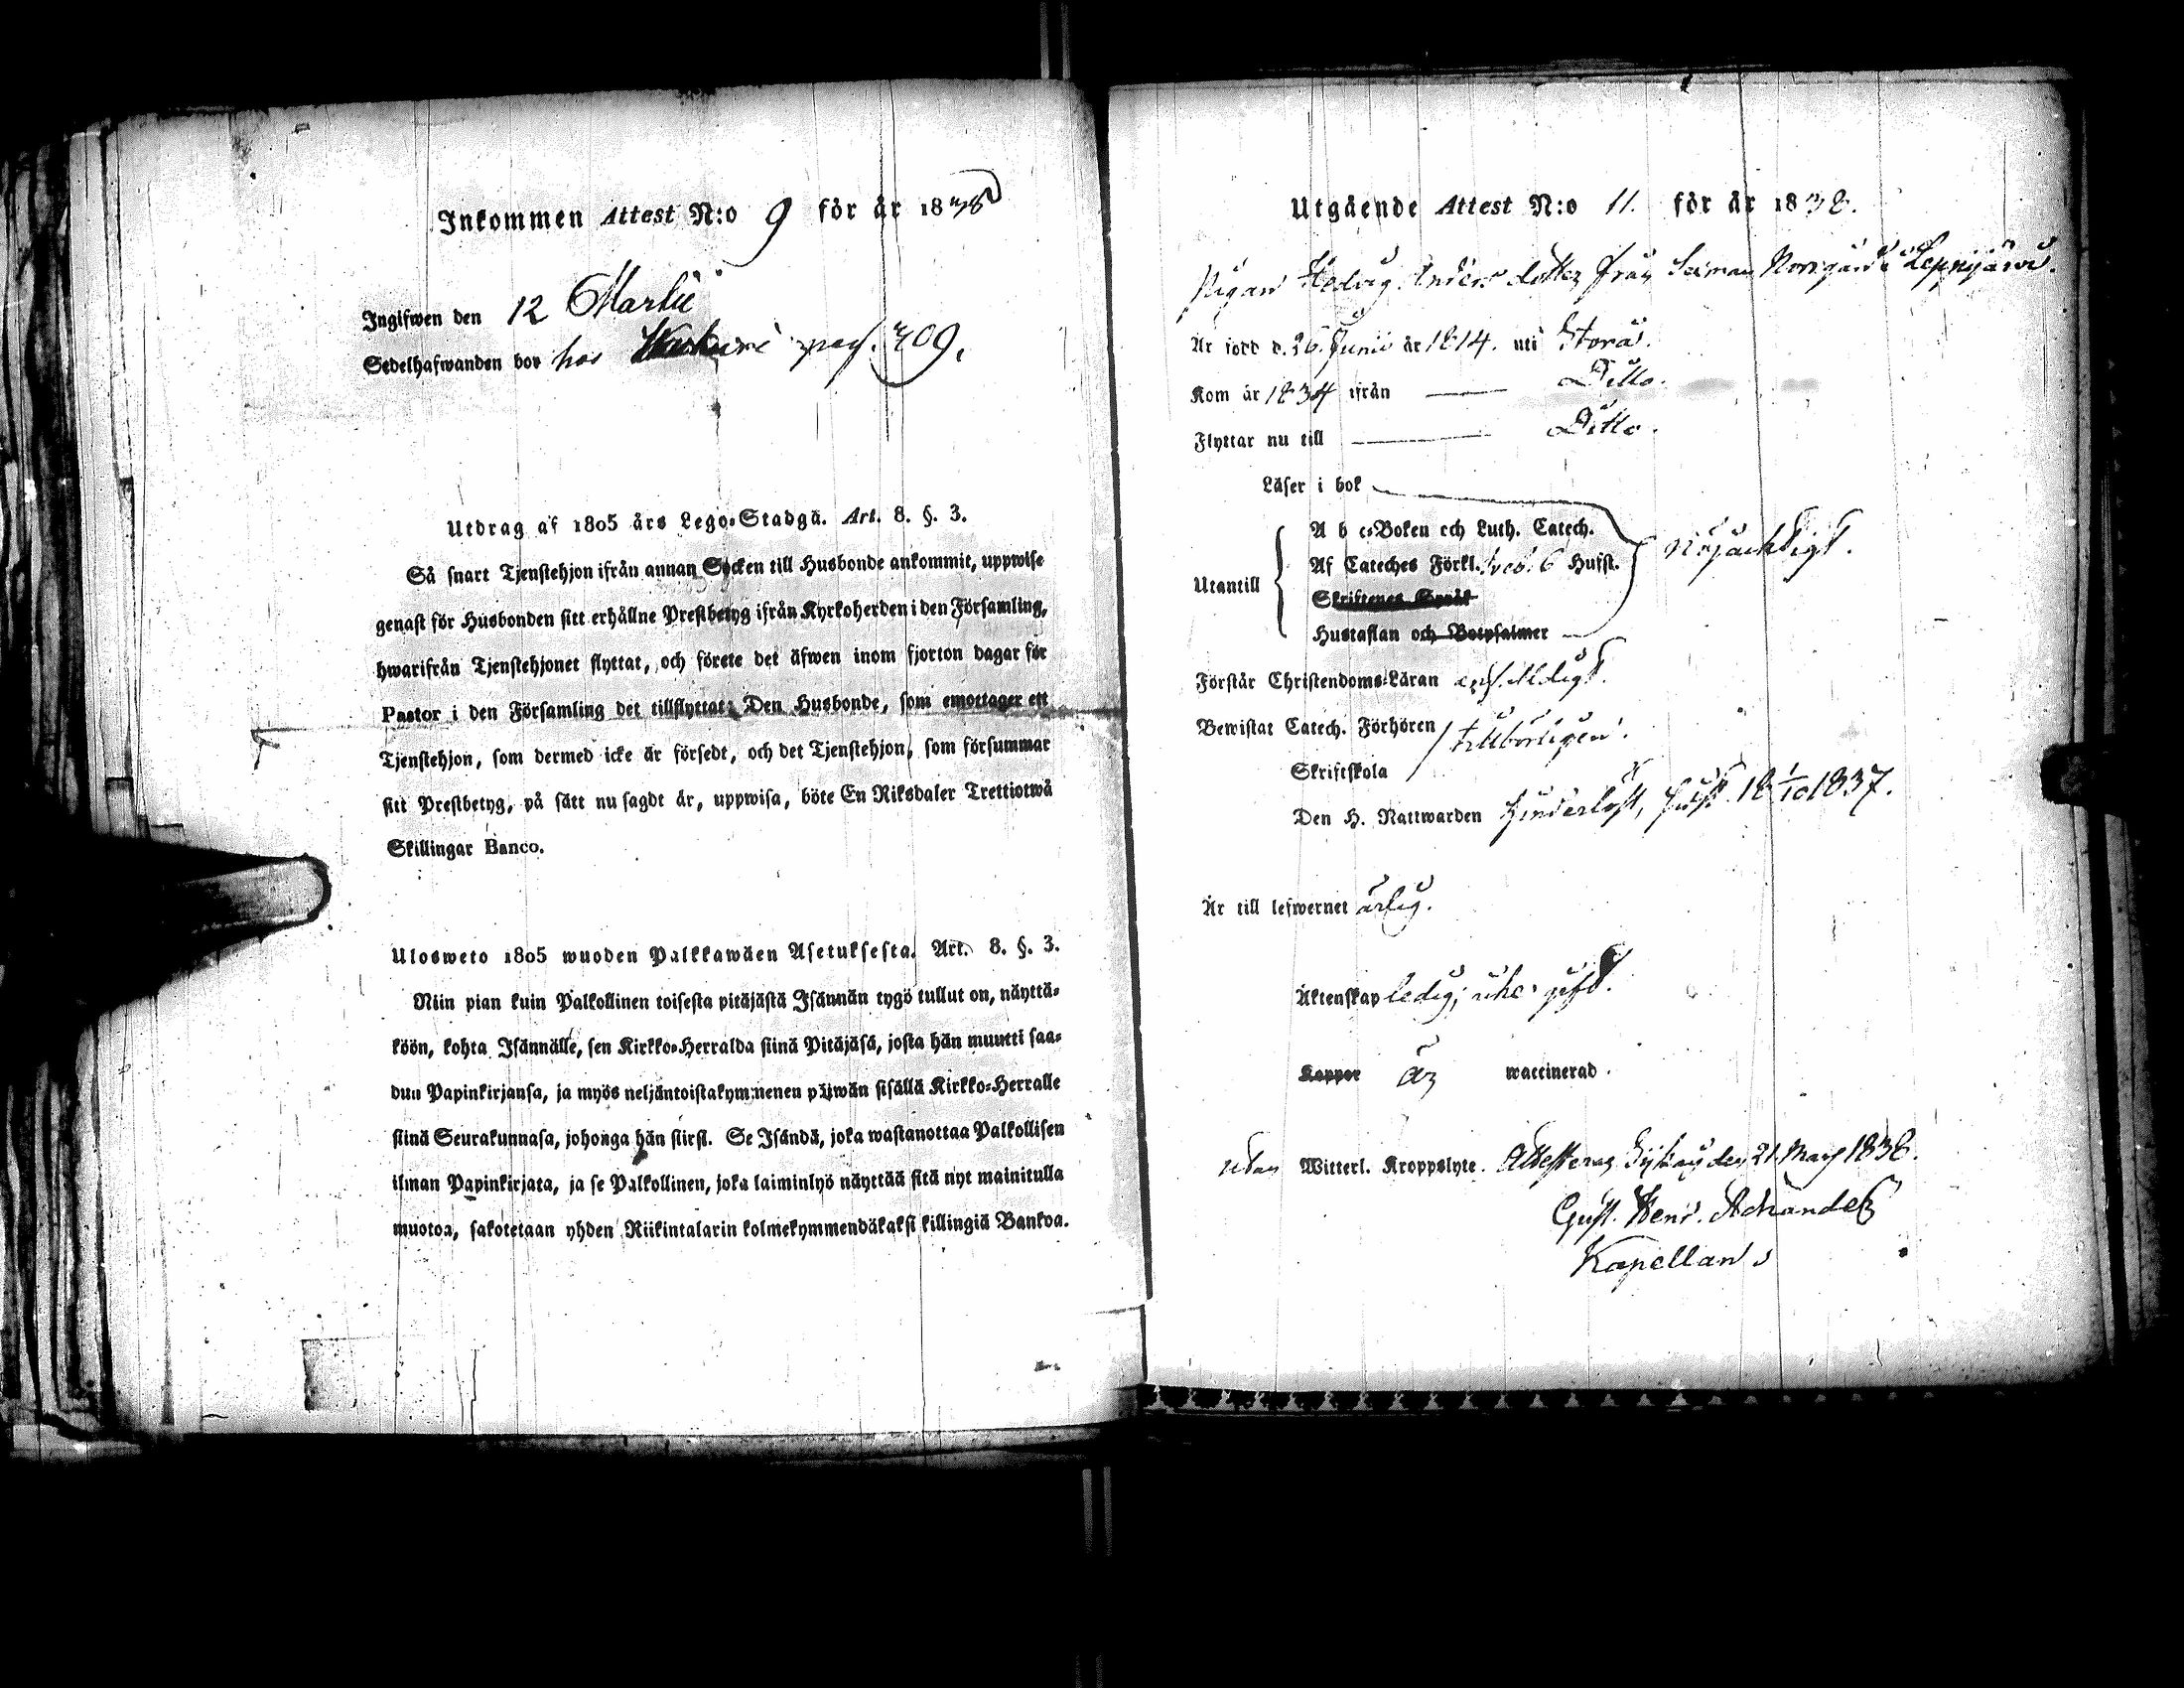 Inkommen Attest N:o 9 för år 1838
Ingifwen den 12 Martii
Sedelhafwanden bor hos pag. 409.
Utdrag af 1805 års Lego-Stadgä. Art. 8. §. 3.
Så snart Tjenstehjon ifrån annan Socken till Husbonde ankommit, uppwise
genast för Husbonden sitt erhållne Prestbetyg ifrån Kyrkoherden i den Församling,
hwarifrån Tjenstehjonet flyttat, och förete det äfwen inom fjorton dagar för
Pastor i den Församling det tillflyttat: Den Husbonde, som emottager ett
Tjenstehjon, som dermed icke är försedt, och det Tjenstehjon, som försummar
sitt Prestbetyg, på sätt nu sagdt är, uppwisa, böte En Riksdaler Trettiotwå
Skillingar Banco.
Ulosweto 1805 wuoden Palkkawäen Asetuksesta. Art. 8. §. 3.
Niin pian kuin Palkollinen toisesta pitäjästä Isännän tygö tullut on, näyttä-
köön, kohta Isännälle, sen Kirkko-Herralda siinä Pitäjäsä, josta hän muutti saa-
dun Papinkirjansa, ja myös neljäntoistakymmenen päiwän sisällä Kirkko-Herralle
siinä Seurakunnasa, johonga hän siirst. Se Isändä, joka wastanottaa Palkollisen
ilman Papinkirjata, ja se Palkollinen, joka laiminlyö näyttää sitä nyt mainitulla
muotoa, sakotetaan yhden Riikintalarin kolmekymmendäkaksi killingiä Bankoa.
Utgående Attest N:o 11. för år 1838.
Pigan Hedvig Anders dotter från Norrgård i Leppijärvi.
Är född d. 26 Junii år 1814. uti Storå.
Kom år 1834 ifrån — Ditto.
Flyttar nu till — Ditto.
Läser i bok
Utantill
A b c-Boken och Luth. Catech.
Af Cateches Förkl. 6 Hufst. nöjachtigt.
Skriftenes Språk
Hustaflan och Botpsalmer
Förstår Christendoms-Läran enfaldigt.
Bewistat Catech. Förhören tillbörligen.
Skriftskola
Den H. Nattwarden sidst 18 1/10 1837.
Är till lefwernet ärlig.
Äktenskap ledig;
Koppor är waccinerad.
utan Witterl. Kroppslyte. Attesterar den 21 Mars 1838.
Gust. Henr.
Kapellan